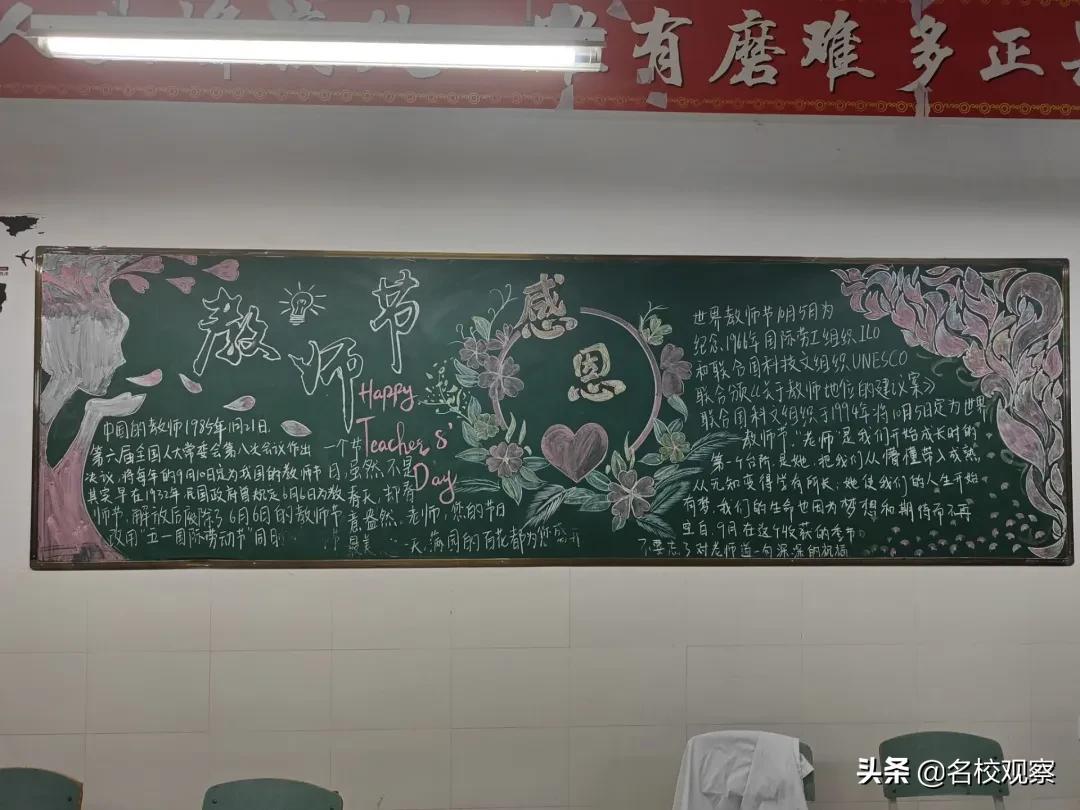 有磨难多正
教师节
Happy
Teacher's'
Day
感
恩
中国的教师1985年1月21日.
第六届全国人大常委会第八次会议作出
决议,将每年的9月10日定为我国的教师节日,
其实早在1932年,民国政府曾规定6月6日为教
师节,解放后废除了6月6日的教师节
改用五一国际劳动节同日
一个节
虽然不是
春天,却春
意盎然,老师,您的节日
最美
天,满园的百花都为您盛开
世界教师节10月5日为
纪念,1966年国际劳工组织ILO
和联合国科技文组织UNESCO
联合颁《关于教师地位的建议案》
联合国科文组织于1994年将10月5日定为世界
教师节.老师是我们开始成长时的
第一个台阶,是她,把我们从懵懂带入成熟
从无知变得学有所长;她使我们的人生开始
有梦,我们的生命也因为梦想和期待而不再
空白,9月在这个收获的季节
不要忘了对老师道一句深深的祝福
头条 @名校观察